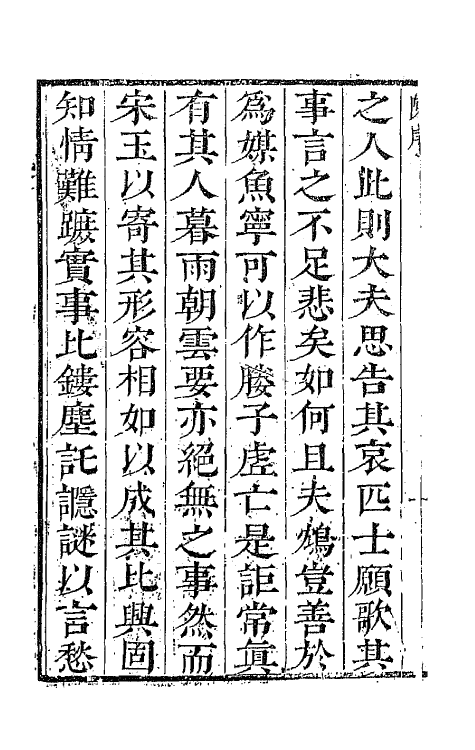 之人此則大夫思告其哀匹士願歌其
事言之不足悲矣如何且夫鴆豈善於
為媒魚寧可以作媵子虛亡是詎常眞
有其人暮雨朝雲要亦絕無之事然而
宋玉以寄其形容相如以成其比興固
知情難蹠實事比鏤塵託讔謎以言愁